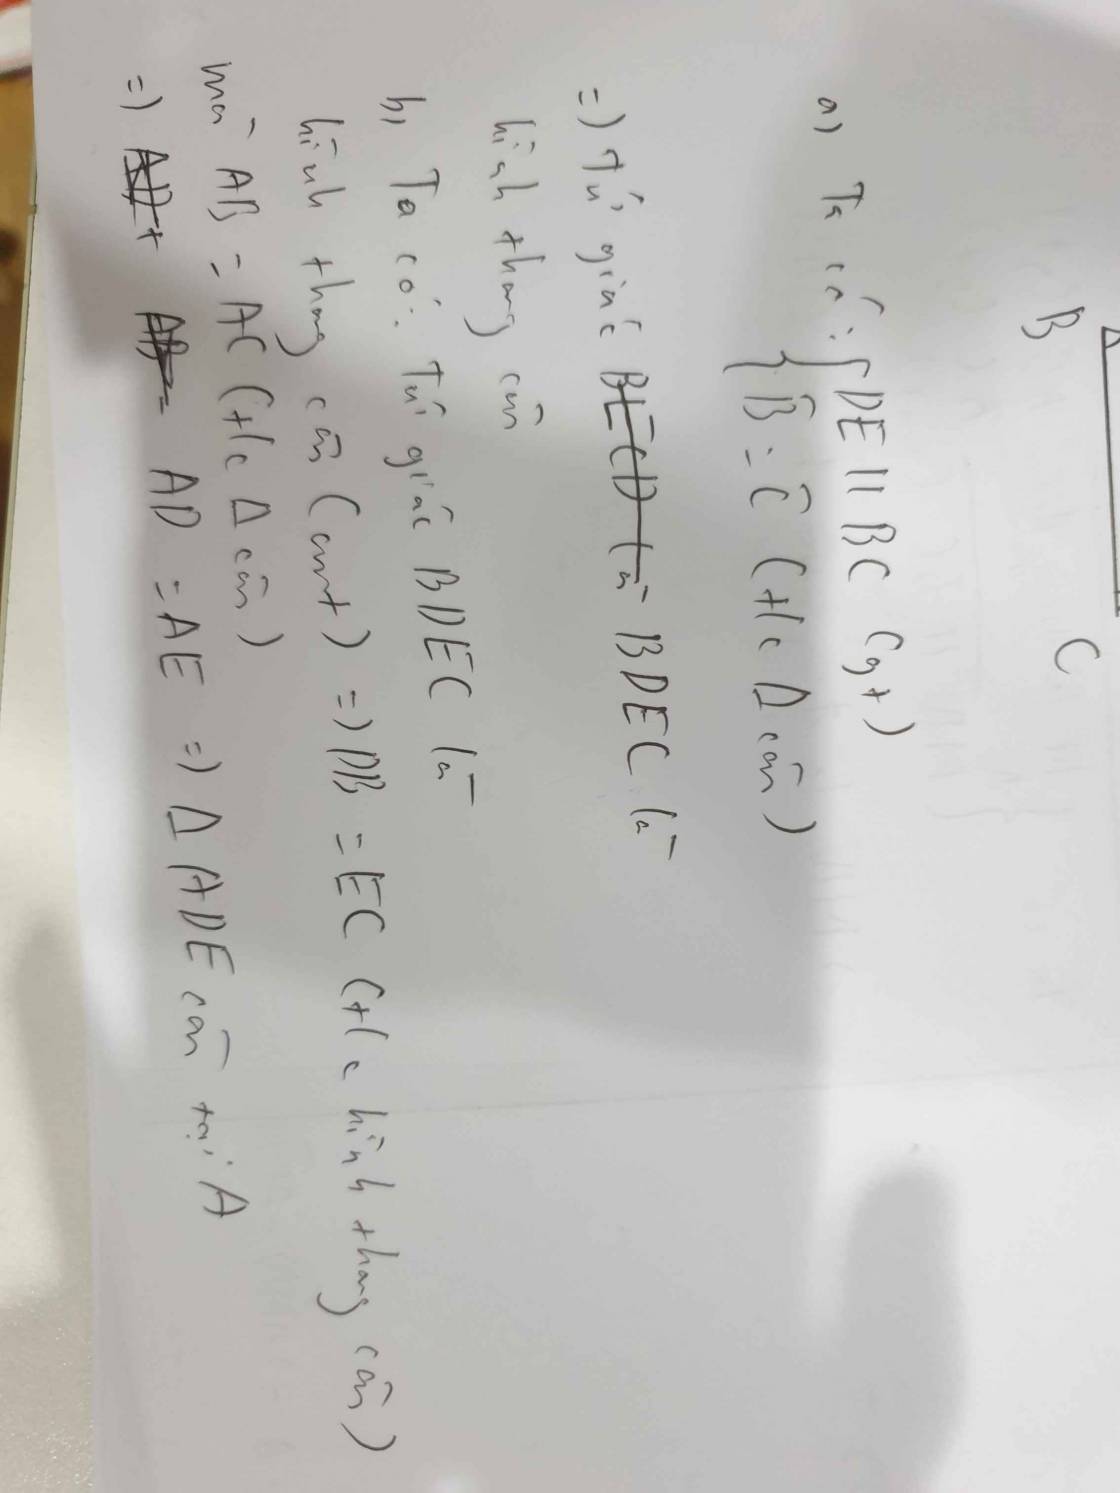 B C
a) Ta có: { DE || BC (gt)
B̂ = Ĉ (t/c Δ cân)
=) Tứ giác BECD là BDEC là
hình thang cân
b, Ta có: Tứ giác BDEC là
hình thang cân (cmt) =) DB = EC (t/c hình thang cân)
mà AB = AC (t/c Δ cân)
=) AD = AE =) Δ ADE cân tại A